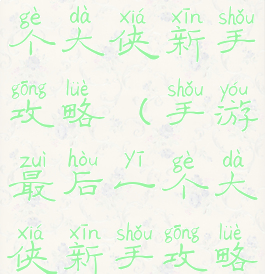 gè dà xiá xīn shǒu
个大侠新手
gōng lüè shǒu yóu
攻略（手游
zuì hòu yī gè dà
最后一个大
xiá xīn shǒu gōng lüè
侠新手攻略